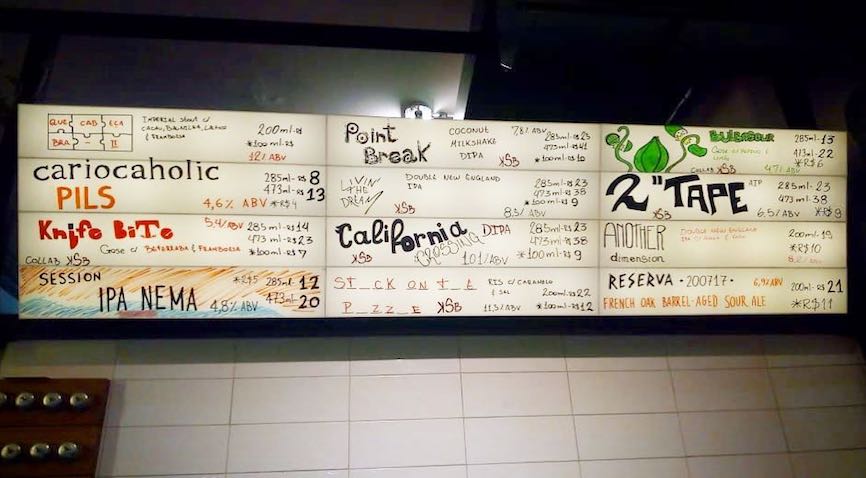 QUE CAB EÇA
BRA - II
IMPERIAL STOUT C/
CACAU, BAUNILHA,
& FRAMBOESA
200ml-R$
*100ml-R$
12% ABV
cariocaholic
PILS
4,6% ABV
285ml-R$ 8
473ml-R$ 13
*R$4
Knife BiTe
5,4% ABV
285ml-R$14
473ml-R$23
*100ml-R$7
GOSE C/ BETERRABA & FRAMBOESA
COLLAB KSB
SESSION
IPA NEMA
4,8% ABV
*R$5
285ml- 12
473ml- 20
Point
Break
COCONUT
MILKSHAKE
DIPA
KSB
7,8% ABV
285ml-R$25
473ml-R$41
*100ml-R$10
LIVIN
THE
DREAM
DOUBLE NEW ENGLAND
IPA
KSB
8,5% ABV
285ml-R$23
473ml-R$38
*100ml-R$9
California
CROSSING
DIPA
KSB
10,1% ABV
285ml-R$23
473ml-R$38
*100ml-R$9
ST_CK ON T_E
P_ZZ_E
KSB
RIS C/ CARAMELO
& SAL
11,5% ABV
200ml-R$22
*100ml-R$12
COLLAB KSB
285ml-13
473ml-22
*R$6
2" TAPE
KSB
6,5% ABV
285ml-23
473ml-38
*R$9
ANOTHER
dimension
DOUBLE NEW ENGLAND
200ml-19
*R$10
8,2% ABV
RESERVA · 200717 ·
6,9% ABV
FRENCH OAK BARREL-AGED SOUR ALE
200ml-R$ 21
*R$11